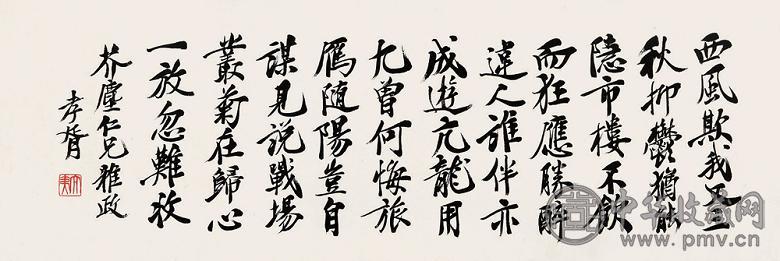 西風欺我
秋抑鬱猶能
隱市樓不飲
而狂應勝醉
違人誰伴亦
成遊亢龍用
九曾何悔旅
鴈隨陽豈自
謀見說戰場
叢菊在歸心
一放忽難收
芥塵仁兄雅政
孝胥
中华收藏网
www.pmv.cn